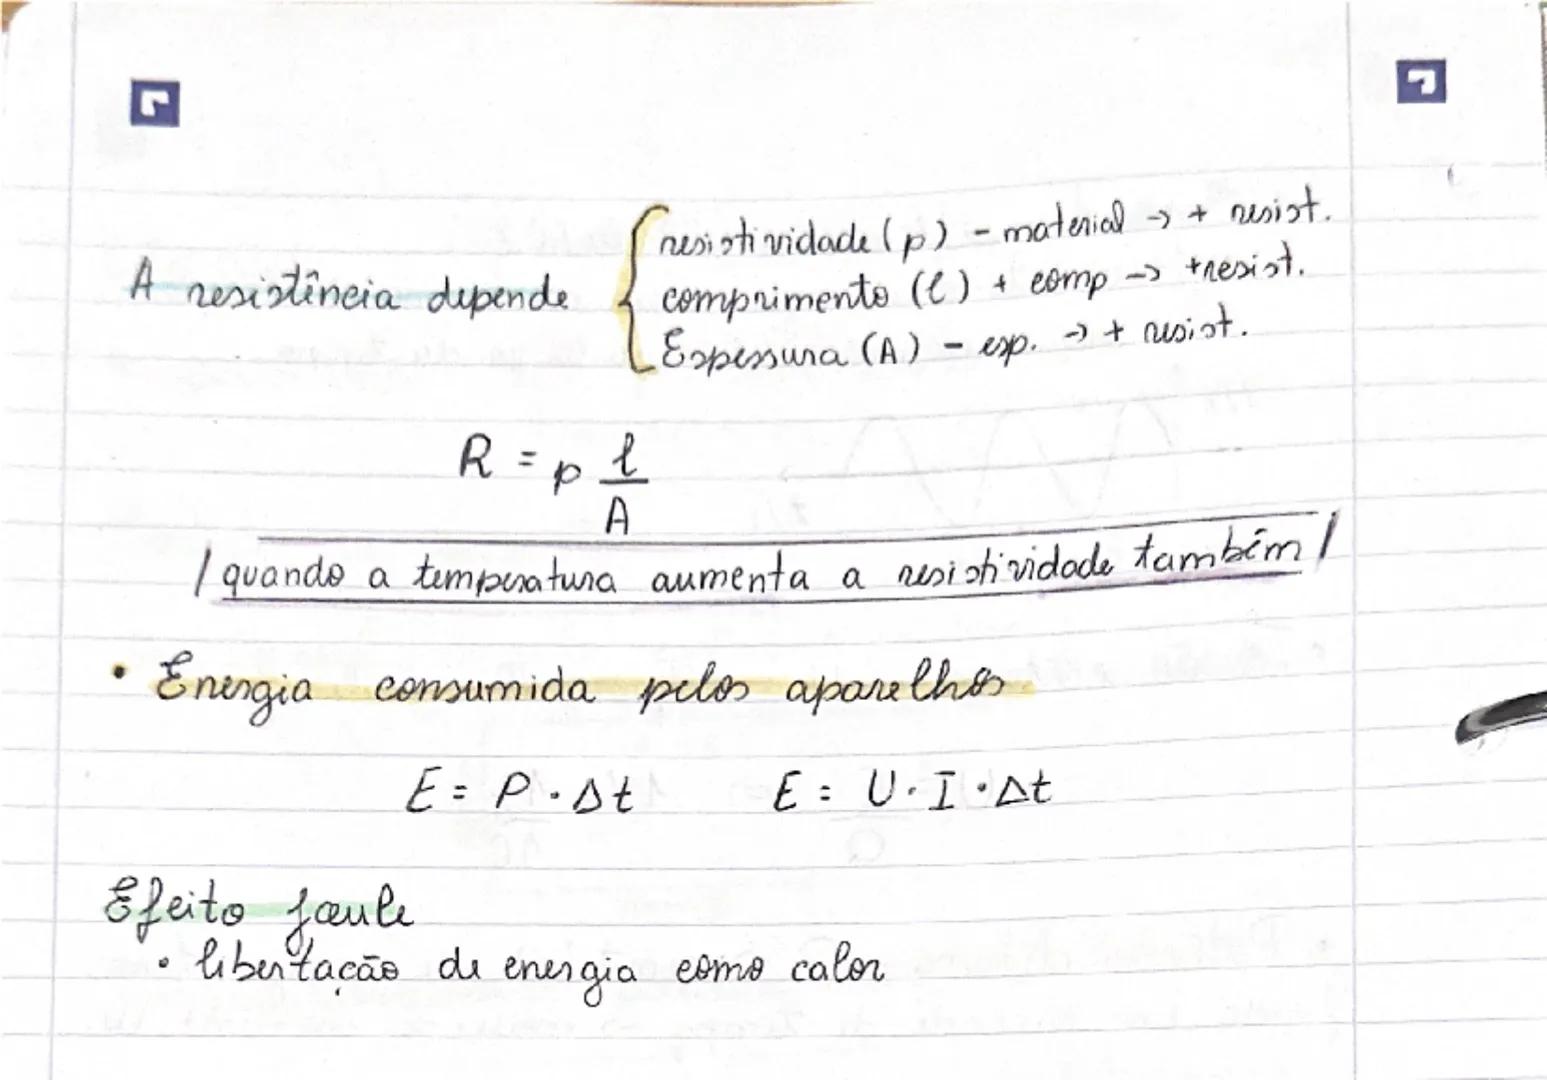 resistividade (p) - material → + resist.
A resistência depende { comprimento (l) + comp → + resist.
Espessura (A) - esp. → + resist.
R = p l
A
/ quando a temperatura aumenta a resistividade também /
• Energia consumida pelos aparelhos
E = P · Δt E = U · I · Δt
Efeito Joule
• libertação de energia como calor